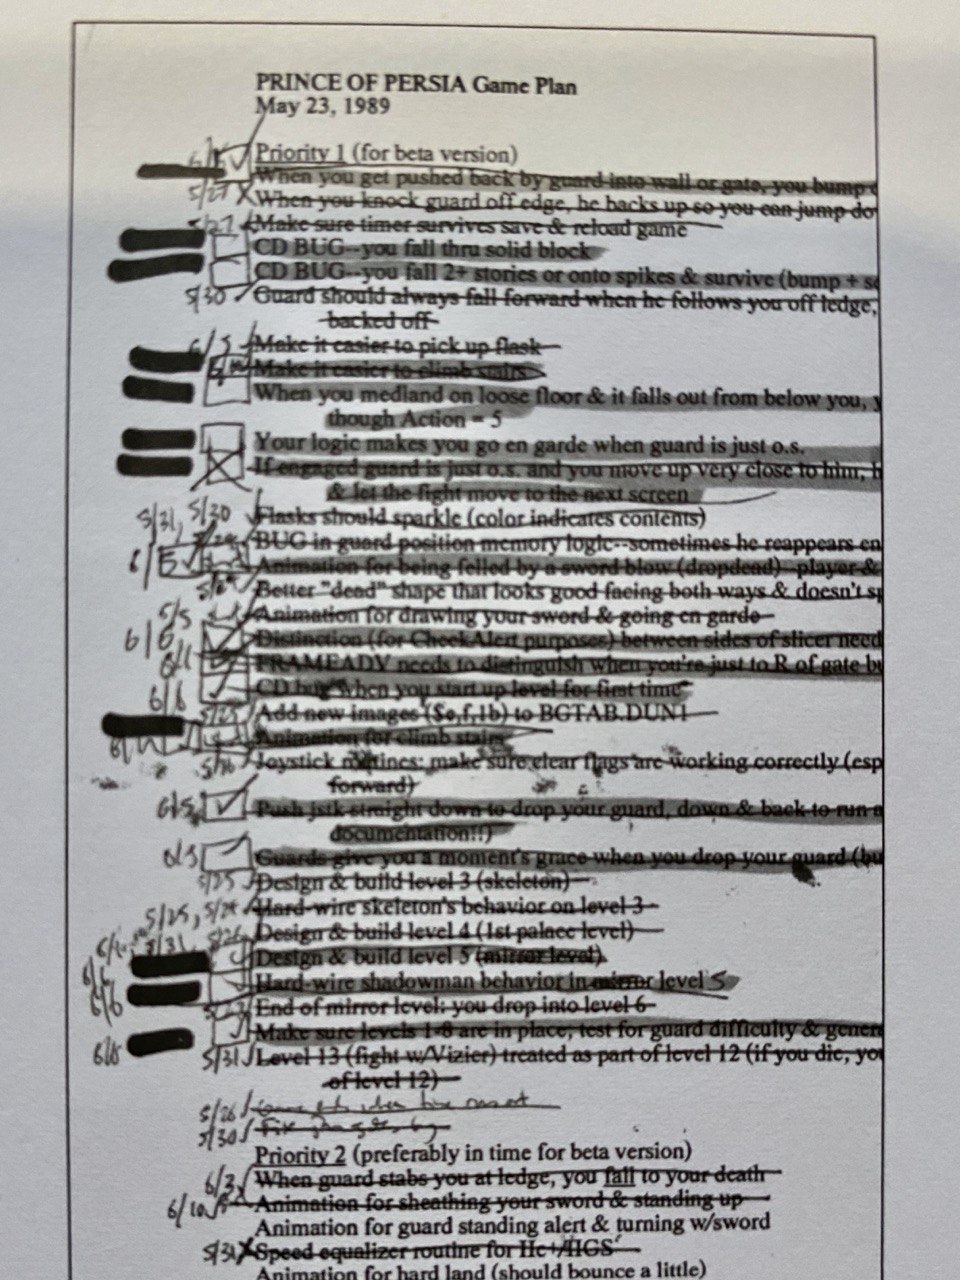 PRINCE OF PERSIA Game Plan
May 23, 1989
Priority 1 (for beta version)
When you get pushed back by guard into wall or gate, you bump
5/27 X When you knock guard off edge, he backs up so you can jump do
5/27 Make sure timer survives save & reload game
CD BUG--you fall thru solid block
CD BUG--you fall 2+ stories or onto spikes & survive (bump + s
5/30 Guard should always fall forward when he follows you off ledge,
backed off
Make it easier to pick up flask
Make it easier to climb stairs
When you medland on loose floor & it falls out from below you, y
though Action = 5
Your logic makes you go en garde when guard is just o.s.
If engaged guard is just o.s. and you move up very close to him, h
& let the fight move to the next screen
5/31, 5/30 Flasks should sparkle (color indicates contents)
BUG in guard position memory logic--sometimes he reappears en
Animation for being felled by a sword blow (dropdead)--player &
Better "dead" shape that looks good facing both ways & doesn't sp
5/5 Animation for drawing your sword & going en garde
6/6 Distinction (for CheckAlert purposes) between sides of slicer need
6/1 FRAMEADV needs to distinguish when you're just to R of gate b
6/6 CD bug when you start up level for first time
5/25 Add new images ($e,f,1b) to BGTAB.DUN1
Animation for climb stairs
5/26 Joystick routines: make sure clear flags are working correctly (esp
forward)
6/5 Push jstk straight down to drop your guard, down & back to run a
documentation!!)
6/5 Guards give you a moment's grace when you drop your guard (bu
5/25 Design & build level 3 (skeleton)
5/25, 5/24 Hard-wire skeleton's behavior on level 3
5/31 5/26 Design & build level 4 (1st palace level)
Design & build level 5 (mirror level)
6/6 Hard-wire shadowman behavior in mirror level 5
6/6 End of mirror level: you drop into level 6
Make sure levels 1-8 are in place; test for guard difficulty & gener
6/8 5/31 Level 13 (fight w/Vizier) treated as part of level 12 (if you die, you
of level 12)
5/26 when time runs out
5/30 Fix
Priority 2 (preferably in time for beta version)
6/2 When guard stabs you at ledge, you fall to your death
6/10 Animation for sheathing your sword & standing up
Animation for guard standing alert & turning w/sword
5/31 X Speed equalizer routine for IIc+/IIGS
Animation for hard land (should bounce a little)